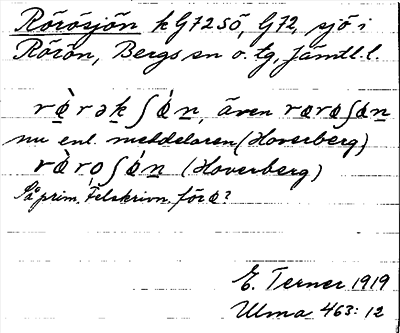 Rörösjön k G72SÖ, G72, sjö i
Rörön, Bergs sn o. tg, Jämtl. l.
även
nu enl. meddelaren (Hoverberg)
(Hoverberg)
På prim. Felskrivn. för ?
E. Terner 1919
Ulma 463:12